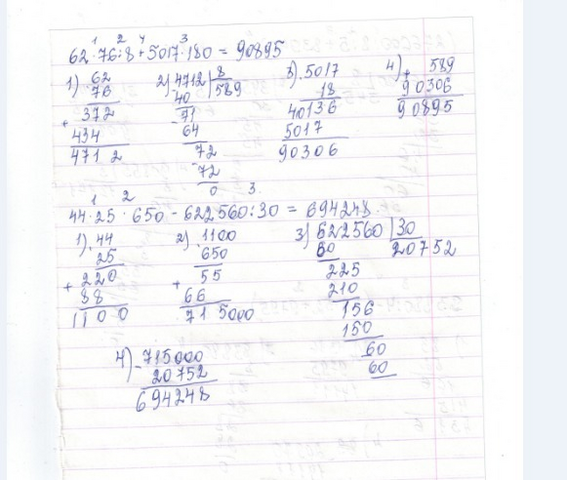 1 2 4 3
62·76:8+5017·180 = 90895
1) 62 2) 4712 | 8 3) 5017 4) 589
76 40 589 18 + 90306
372 71 40136 90895
+ 434 64 5017
4712 72 90306
72
0
1 2 3
44·25·650-622560:30 = 694248
1) 44 2) 1100 3) 622560 | 30
25 650 60 20752
+ 220 + 55 225
88 66 210
1100 715000 156
150
4) - 715000 60
20752 60
694248